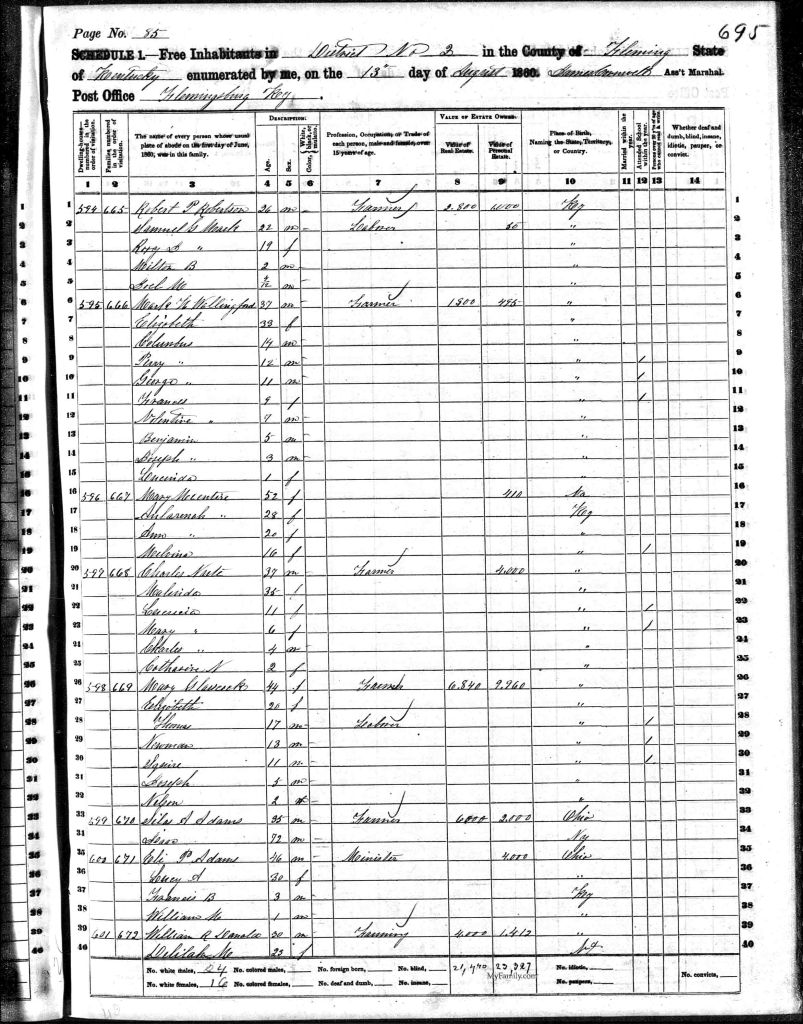 695
Page No. 85
SCHEDULE 1.—Free Inhabitants in District No 3 in the County of Fleming State
of Kentucky enumerated by me, on the 13th day of August 1860. Ass't Marshal.
Post Office Flemingsburg Key.
Dwelling-houses—numbered in the order of visitation. Families numbered in the order of visitation. The name of every person whose usual place of abode on the first day of June, 1860, was in this family. DESCRIPTION: Age. Sex. Color, White, black, or mulatto. Profession, Occupation, or Trade of each person, male and female, over 15 years of age. VALUE OF ESTATE OWNED. Value of Real Estate. Value of Personal Estate. Place of Birth, Naming the State, Territory, or Country. Married within the year. Attended School within the year. Persons over 20 y'rs of age who cannot read & write. Whether deaf and dumb, blind, insane, idiotic, pauper, or convict.
1 2 3 4 5 6 7 8 9 10 11 12 13 14
1 594 665 Robert P Robertson 26 m Farmer 2.800 Key 1
2 Samuel G 22 m Laborer 50 " 2
3 " 19 f " 3
4 Milton B 2 m " 4
5 Joel M m " 5
6 595 666 Mark Wallingford 37 m Farmer 1800 495 " 6
7 Elizabeth 33 f " 7
8 Columbus 14 m " 8
9 Perry " 12 m " / 9
10 George " 11 m " / 10
11 Frances 9 f " / 11
12 Valentine " 7 m " 12
13 Benjamin 5 m " 13
14 Joseph " 3 m " 14
15 Lucinda 1 f " 15
16 596 667 Mary 52 f 410 Va 16
17 " 28 f Key 17
18 Ann " 20 f " 18
19 Melvina 16 f " / 19
20 597 668 Charles 37 m Farmer 4.000 " 20
21 Malinda 35 f " 21
22 11 f " / 22
23 Mary " 6 f " / 23
24 Charles " 4 m " 24
25 Catharine N 2 f " 25
26 598 669 Mary Glascock 44 f Farmer 6.840 9.960 " 26
27 Elizabeth 20 f " 27
28 Thomas 17 m Laborer " / 28
29 Newman 13 m " / 29
30 Squire 11 m " / 30
31 Joseph 5 m " 31
32 Nelson 2 m " 32
33 599 670 Silas A Adams 35 m Farmer 6000 2.000 Ohio 33
34 72 m 34
35 600 671 Eli P Adams 46 m Minister 4.000 Ohio 35
36 Lucy A 30 f " 36
37 Francis B 3 m Key 37
38 William M 1 m " 38
39 601 672 William 30 m Farming 4.000 1.412 " 39
40 Delilah M 23 f 40
No. white males, 24 No. colored males, No. foreign born, No. blind, 21,440 23,327 No. idiotic, No. convicts,
No. white females, 16 No. colored females, No. deaf and dumb, No. insane, No. paupers,
MyFamily.com